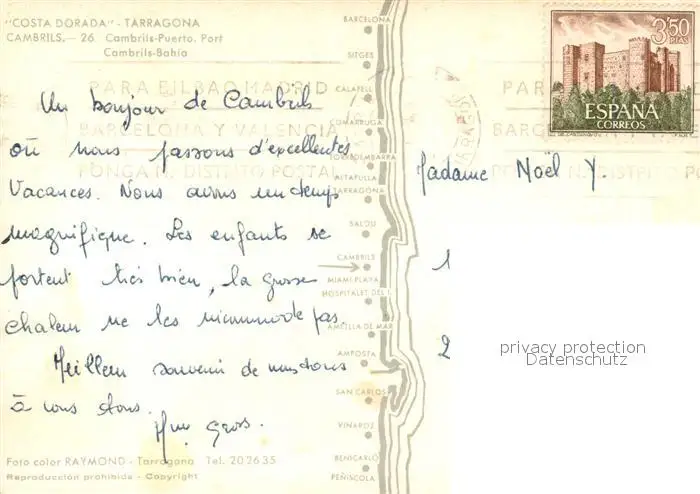 "COSTA DORADA" - TARRAGONA
CAMBRILS.— 26 Cambrils-Puerto. Port
Cambrils-Bahía
PARA BILBAO MADRID
BARCELONA Y VALENCIA
PONGA N. DISTRITO POSTAL
Un bonjour de Cambrils
où nous passons d'excellentes
Vacances. Nous avons un temps
magnifique. Les enfants se
portent très bien, la grosse
chaleur ne les incommode pas
Meilleur souvenir de nous tous
à vous tous.
Mme Gross.
Foto color RAYMOND - Tarragona Tel. 202635
Reproducción prohibida - Copyright
BARCELONA
SITGES
CALAFELL
COMARRUGA
TORREDEMBARRA
ALTAFULLA
TARRAGONA
SALOU
CAMBRILS
MIAMI PLAYA
HOSPITALET DEL I.
AMETLLA DE MAR
AMPOSTA
SAN CARLOS
VINAROZ
BENICARLÓ
PEÑISCOLA
3'50
PTAS
ESPAÑA
CORREOS
PAR
BARCE
N. DISTRITO PO
Madame Noël Y.
1
2
privacy protection
Datenschutz